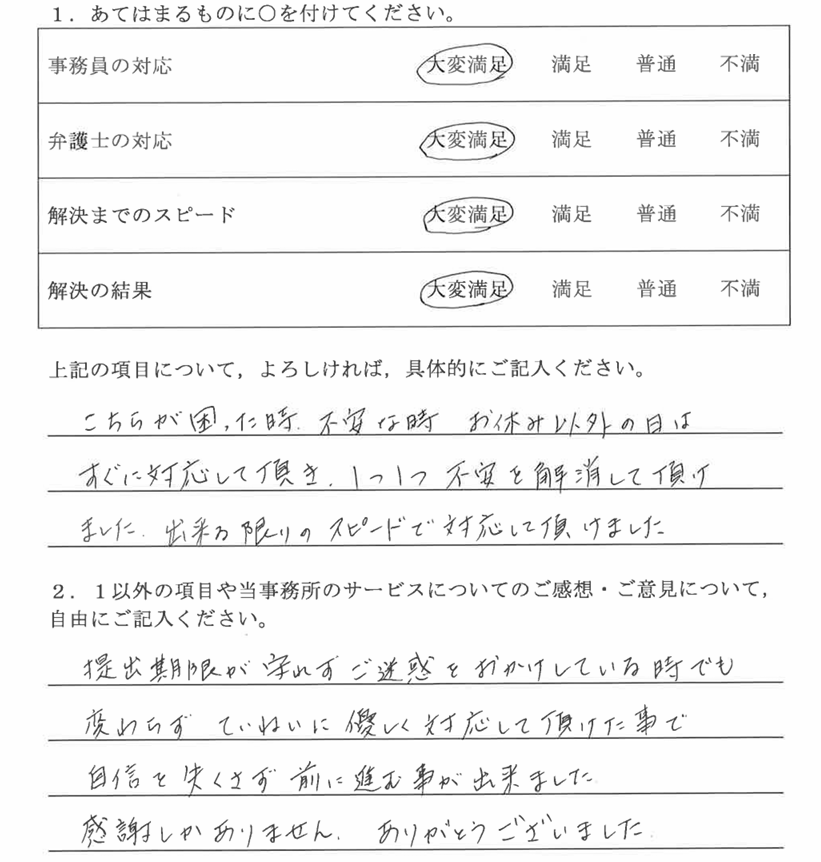 １．あてはまるものに○を付けてください。
事務員の対応 大変満足 満足 普通 不満
弁護士の対応 大変満足 満足 普通 不満
解決までのスピード 大変満足 満足 普通 不満
解決の結果 大変満足 満足 普通 不満
上記の項目について，よろしければ，具体的にご記入ください。
こちらが困った時、不安な時 お休み以外の日は
すぐに対応して頂き、1つ1つ 不安を解消して頂け
ました。出来る限りのスピードで対応して頂けました
２．１以外の項目や当事務所のサービスについてのご感想・ご意見について，
自由にご記入ください。
提出期限が守れずご迷惑をおかけしている時でも
変わらず ていねいに優しく対応して頂けた事で
自信を失くさず前に進む事が出来ました。
感謝しかありません。 ありがとうございました。